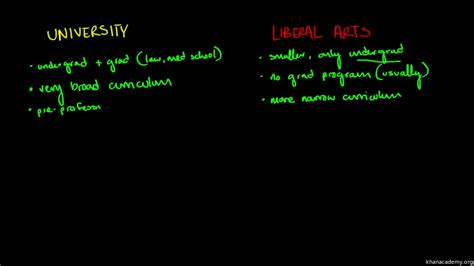 UNIVERSITY
• undergrad + grad (law, med school)
• very broad curriculum
• pre-profess
LIBERAL ARTS
• smaller, only undergrad
• no grad program (usually)
• more narrow curriculum
khanacademy.org